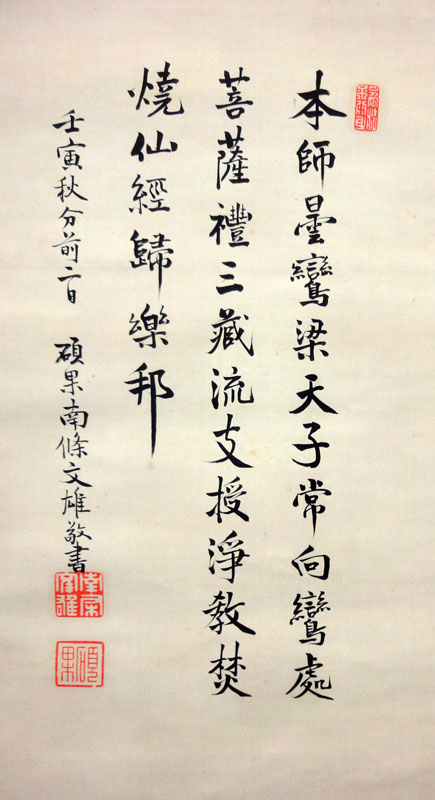 本師曇鸞梁天子常向鸞處
菩薩禮三藏流支授淨教焚
燒仙經歸樂邦
壬寅秋分前二日 碩果南條文雄敬書
南條文雄
碩果